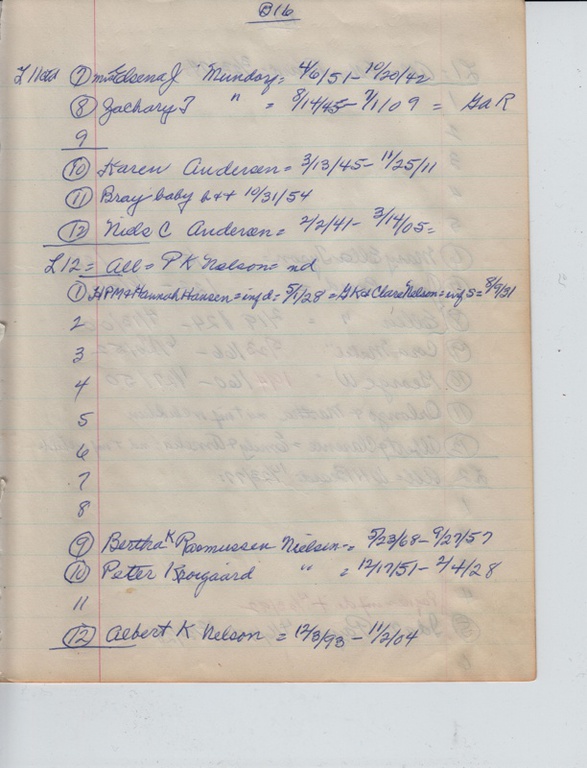 B 16
L 11 ctd ⑦ Mrs Edsena J Munday = 4/6/51 - 10/20/42
⑧ Zachary T " = 8/14/45 - 7/1/09 = GaR
9
⑩ Karen Andersen = 3/13/45 - 11/25/11
⑪ Bray baby b++ 10/31/54
⑫ Niels C Andersen = 2/2/41 - 3/14/05 =
L 12 = All = P K Nelson = nd
① HPM & Hannah Hansen = inf d = 5/1/28 = GK & Clara Nelson = inf S = 8/9/31
2
3
4
5
6
7
8
⑨ Bertha K Rasmussen Nielsen = 5/23/68 - 9/27/57
⑩ Peter Kroigaard " = 12/17/51 - 2/4/28
11
⑫ Albert K Nelson = 12/3/93 - 11/2/04